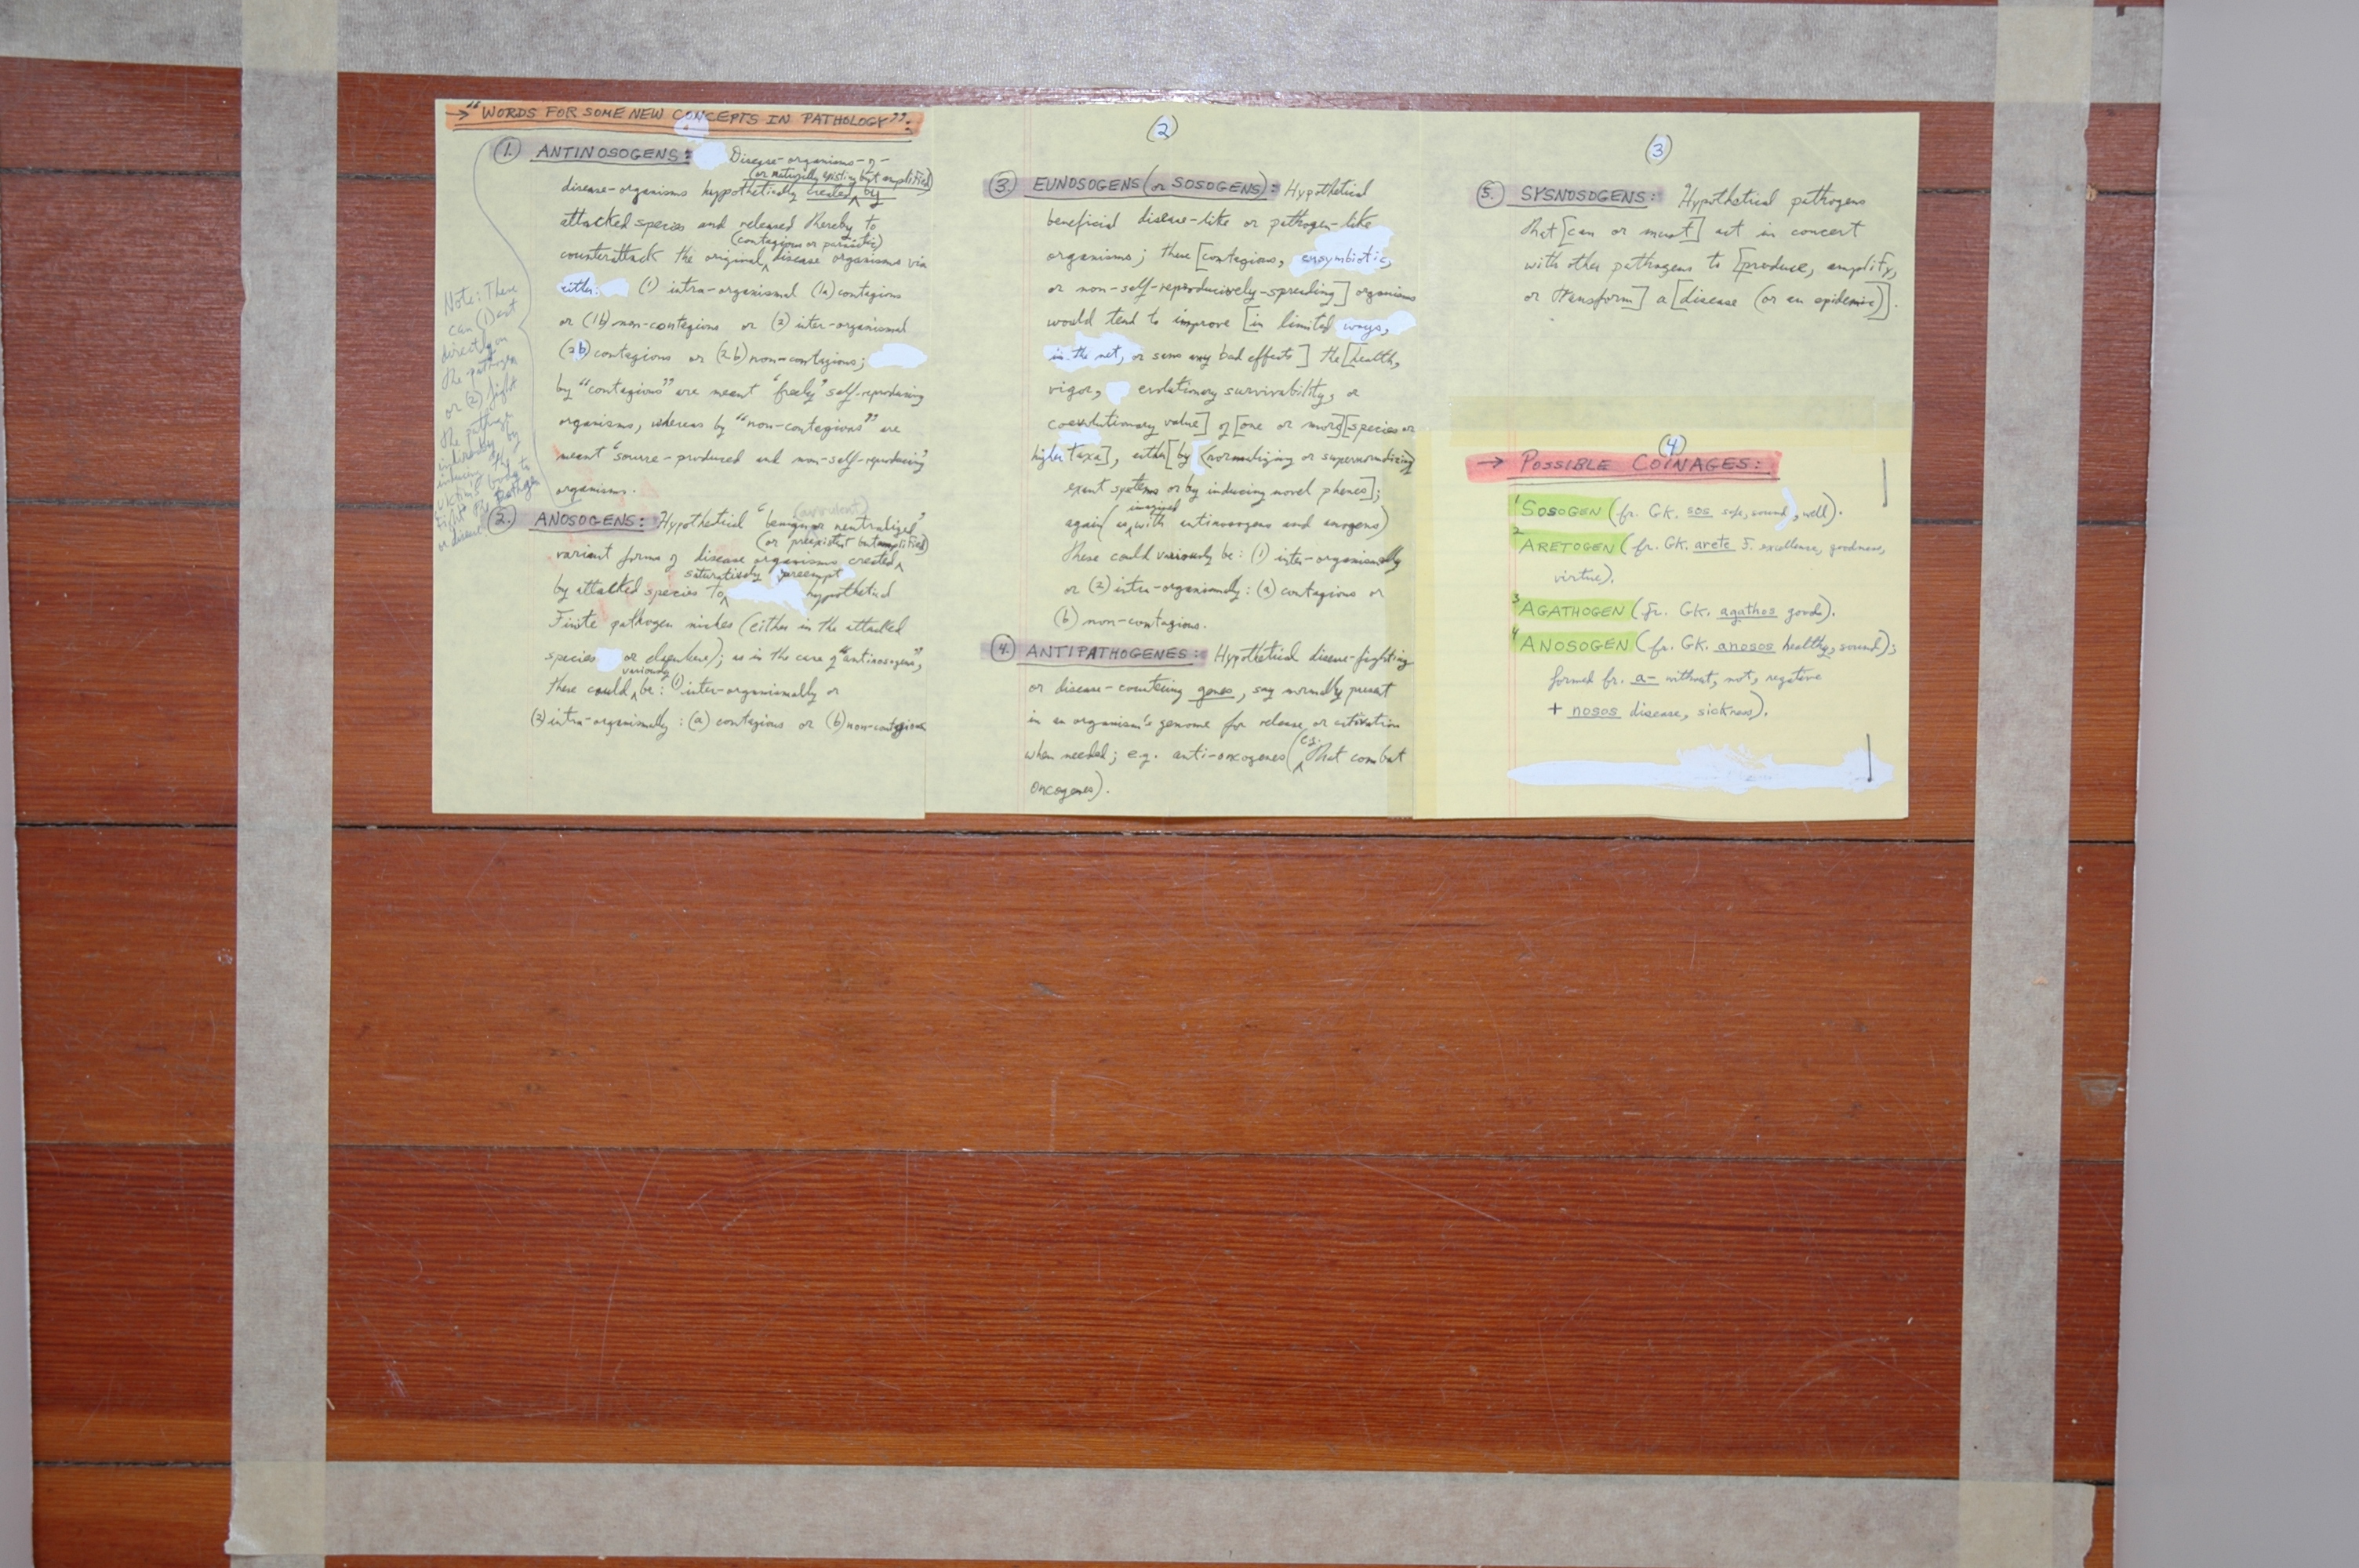 → "WORDS FOR SOME NEW CONCEPTS IN PATHOLOGY":
1. ANTINOSOGENS: Disease-organisms-of-
(or naturally existing but amplified)
disease-organisms hypothetically created ^ by
attacked species and released thereby to
(contagious or parasitic)
counterattack the original ^ disease organisms via
either: (1) intra-organismal (1a) contagious
or (1b) non-contagious or (2) inter-organismal
(2b) contagious or (2b) non-contagious;
by "contagious" are meant "freely" self-reproducing
organisms, whereas by "non-contagious" are
meant "source-produced and non-self-reproducing"
organisms.
Note: These
can (1) act
directly on
the pathogen
or (2) fight
the pathogen
indirectly by
inducing the
victim's body to
fight the pathogen
or disease.
2. ANOSOGENS: Hypothetical "benign or neutralized"
(avirulent)
(or preexistent but amplified)
variant forms of disease organisms created ^
saturatively preempt
by attacked species to ^ hypothetical
finite pathogen niches (either in the attacked
species or elsewhere); as in the case of "antinosogens",
variously
these could ^ be: (1) inter-organismally or
(2) intra-organismally: (a) contagious or (b) non-contagious
(2)
3. EUNOSOGENS (or SOSOGENS): Hypothetical
beneficial disease-like or pathogen-like
organisms; these [contagious, ensymbiotic,
or non-self-reproducively-spreading] organisms
would tend to improve [in limited ways,
in the net, or sans any bad effects] the [health,
vigor, evolutionary survivability, or
coevolutionary value] of [one or more] [species or
higher taxa], either [by (normalizing or supernormalizing)
extant systems or by inducing novel phenes];
imagined
again (as ^ with antinosogens and anosogens)
these could variously be: (1) inter-organismally
or (2) intra-organismally: (a) contagious or
(b) non-contagious.
4. ANTIPATHOGENES: Hypothetical disease-fighting
or disease-countering genes, say normally present
in an organism's genome for release or activation
when needed; e.g. anti-oncogenes (^ e.g. that combat
oncogenes).
(3)
5. SYSNOSOGENS: Hypothetical pathogens
that [can or must] act in concert
with other pathogens to [produce, amplify,
or transform] a [disease (or an epidemic)].
(4)
→ POSSIBLE COINAGES:
1 SOSOGEN (fr. GK. sos safe, sound, well).
2 ARETOGEN (fr. GK. arete F. excellence, goodness,
virtue).
3 AGATHOGEN (fr. GK. agathos good).
4 ANOSOGEN (fr. GK. anosos healthy, sound);
formed fr. a- without, not, negative
+ nosos disease, sickness).